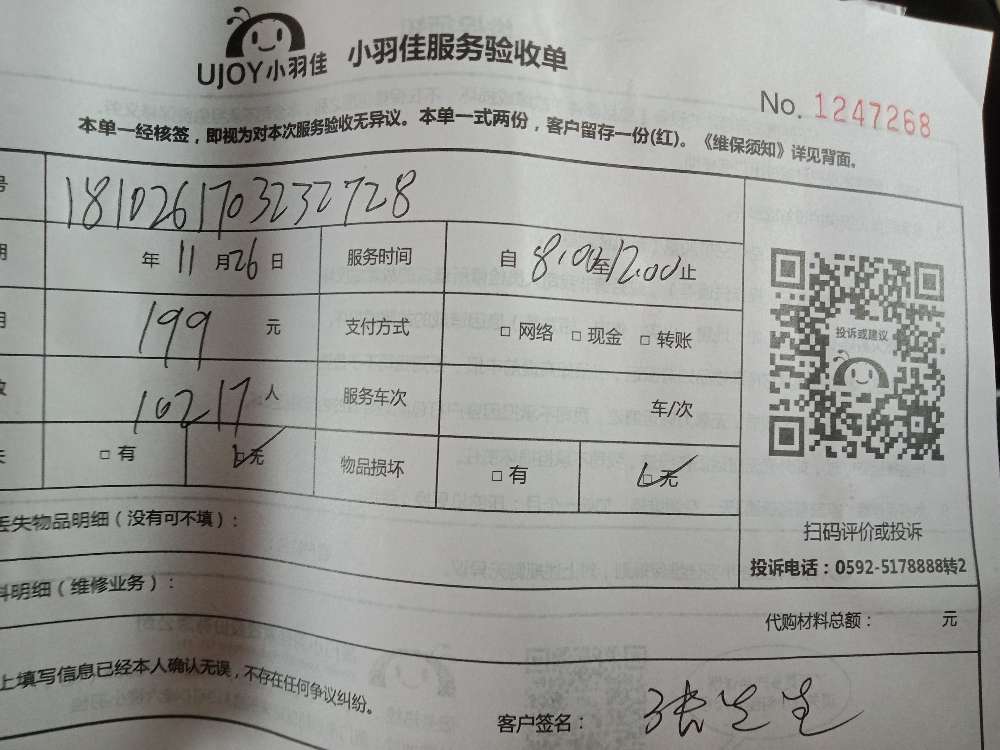 UJOY小羽佳 小羽佳服务验收单
No. 1247268
本单一经核签，即视为对本次服务验收无异议。本单一式两份，客户留存一份(红)。《维保须知》详见背面。
号 181026170323272​8
年 11 月 26 日 服务时间 自 8:00 至 12:00 止
199 元 支付方式 □ 网络 □ 现金 □ 转账
16217 人 服务车次 车/次
□ 有 □ 无 物品损坏 □ 有 □ 无
投诉或建议
扫码评价或投诉
投诉电话：0592-5178888转2
丢失物品明细（没有可不填）：
料明细（维修业务）：
代购材料总额： 元
上填写信息已经本人确认无误，不存在任何争议纠纷。
客户签名： 张先生